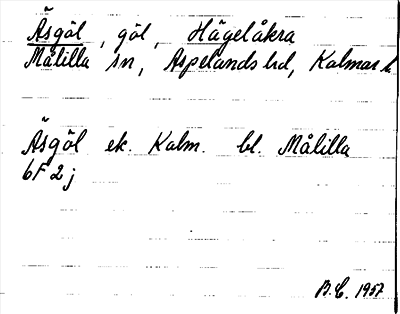 Äsgöl, göl, Hägelåkra
Målilla sn, Aspelands hd, Kalmar l.
Äsgöl ek. Kalm. bl. Målilla
6F2j
B.E. 1957